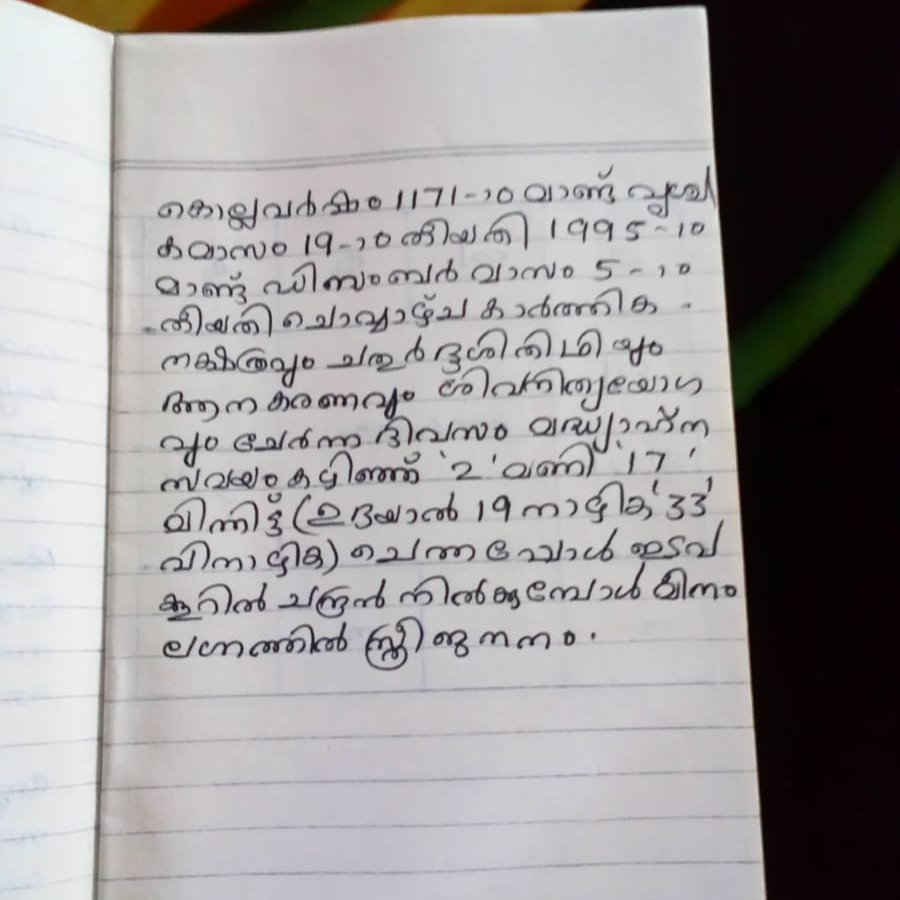 കൊല്ലവർഷം 1171-ാമാണ്ട് വൃശ്ചി
കമാസം 19-ാം തീയതി 1995-ാ
മാണ്ടു ഡിസംബർ മാസം 5-ാം
തീയതി ചൊവ്വാഴ്ച കാർത്തിക
നക്ഷത്രവും ചതുർദ്ദശിതിഥിയും
ആന കരണവും ശിവനിത്യയോഗ
വും ചേർന്ന ദിവസം മദ്ധ്യാഹ്ന
സമയം കഴിഞ്ഞ് '2' മണി '17'
മിനിട്ട് (ഉദയാൽ 19 നാഴിക '33'
വിനാഴിക) ചെന്നപ്പോൾ ഇടവ
ക്കൂറിൽ ചന്ദ്രൻ നിൽക്കുമ്പോൾ മീനം
ലഗ്നത്തിൽ സ്ത്രീ ജനനം.